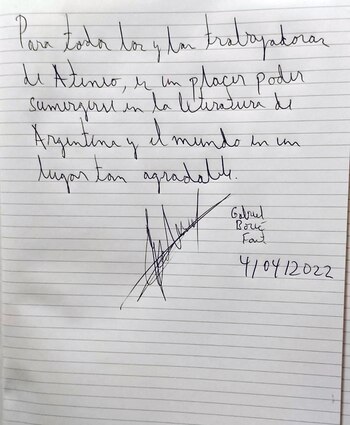 Para todos los y las trabajadoras
de Ateneo, es un placer poder
sumergirse en la literatura de
Argentina y el mundo en un
lugar tan agradable.
Gabriel
Boric
Font
4/04/2022